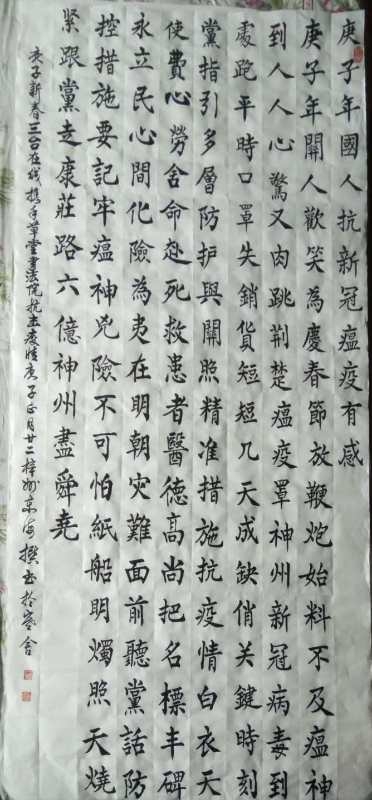 庚子年國人抗新冠瘟疫有感
庚子年關人歡笑為慶春節放鞭炮始料不及瘟神
到人人心驚又肉跳荆楚瘟疫罩神州新冠病毒到
處跑平時口罩失銷貨短短几天成缺俏关鍵時刻
黨指引多層防护與關照精准措施抗疫情白衣天
使費心勞舍命赴死救患者醫德高尚把名標丰碑
永立民心間化險為夷在明朝灾難面前聽黨話防
控措施要記牢瘟神兇險不可怕紙船明燭照天燒
紧跟黨走康莊路六億神州盡舜堯
庚子新春三台在线携手草堂書法院抗击疫情庚子正月廿二梓州京海撰书於宽舍